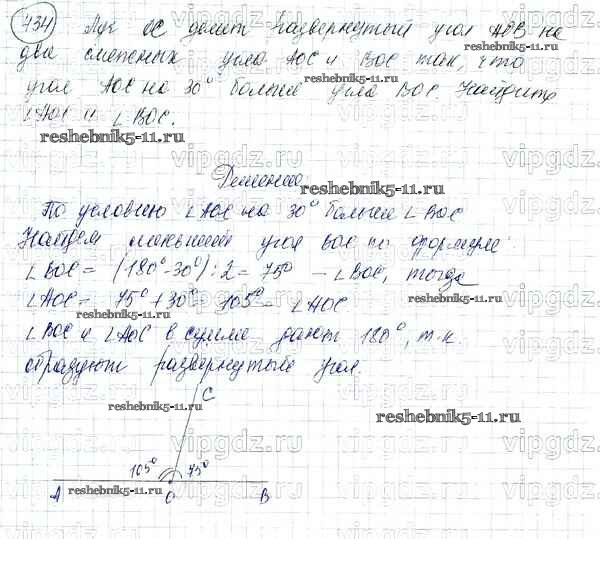 434 Луч ОС делит развернутый угол АОВ на
два смежных угла АОС и ВОС так, что
угол АОС на 30° больше угла ВОС. Найдите
∠АОС и ∠ВОС.
reshebnik5-11.ru
vipgdz.ru
Решение
reshebnik5-11.ru
По условию ∠АОС на 30° больше ∠ВОС
Найдем меньший угол ВОС по формуле:
∠ВОС = (180°-30°):2 = 75° - ∠ВОС, тогда
∠АОС = 75° + 30° 105° - ∠АОС
∠ВОС и ∠АОС в сумме дают 180°, т.к.
образуют развернутый угол.
С
reshebnik5-11.ru
reshebnik5-11.ru
vipgdz.ru
105° 75°
А О В
reshebnik5-11.ru